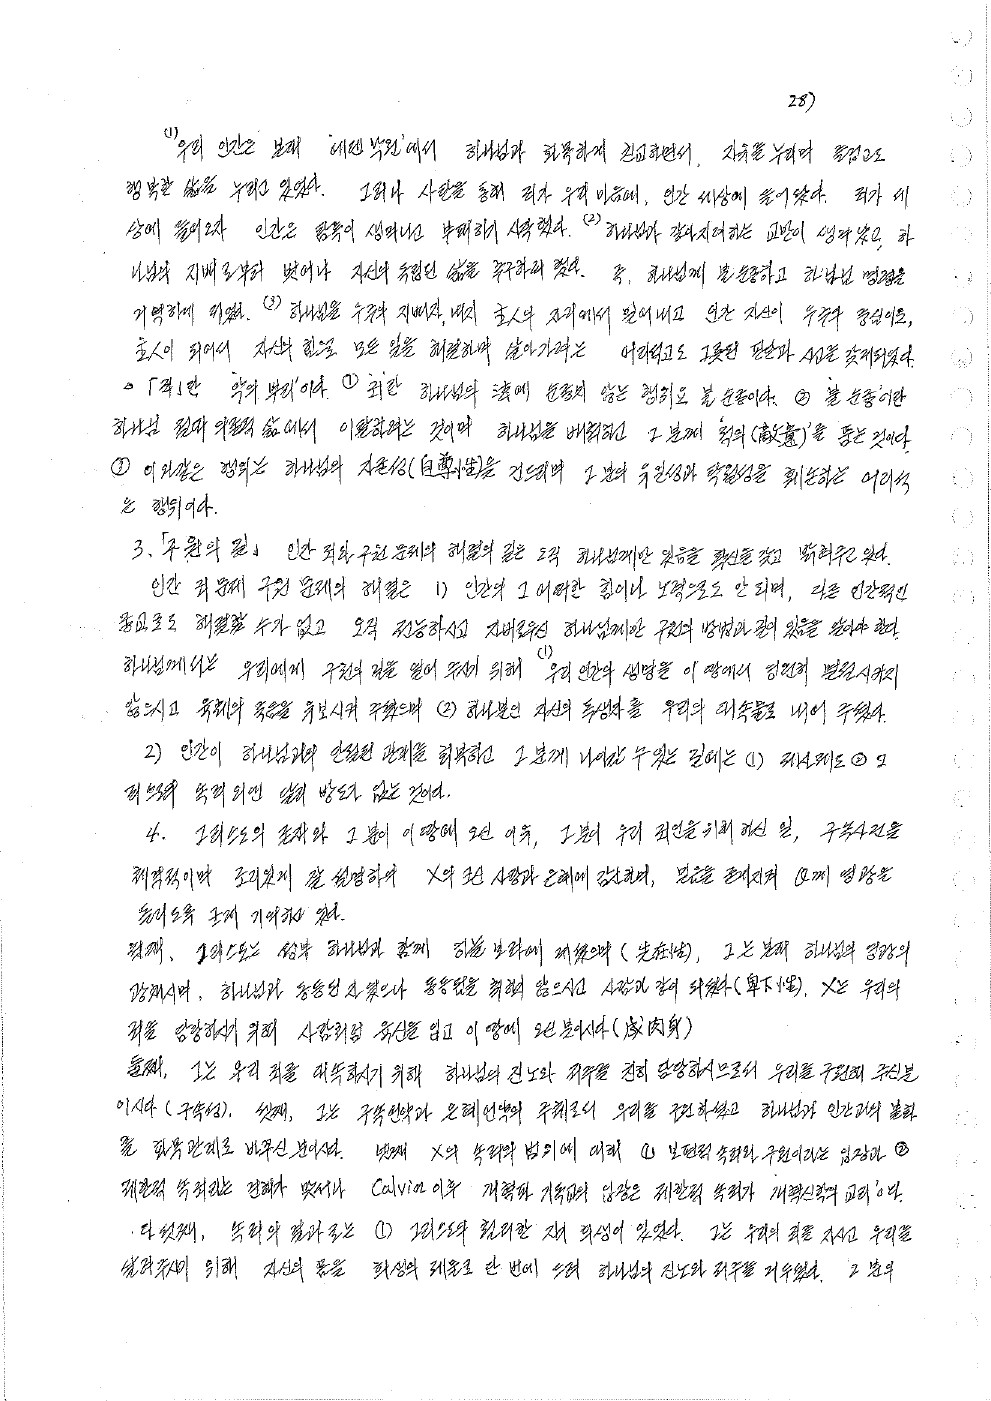 28)
(1)우리 인간은 본래 '에덴낙원'에서 하나님과 화목하게 친교하면서, 자유를 누리며 즐겁고도
행복한 삶을 누리고 있었다. 그러나 사탄을 통해 죄가 우리 마음에, 인간 세상에 들어왔다. 죄가 세
상에 들어오자 인간은 탐욕이 생겨나고 부패하기 시작했다. (2) 하나님과 같아지려하는 교만이 생겨났고, 하
나님의 지배로부터 벗어나 자신의 독립된 삶을 추구하려 했다. 즉, 하나님께 불순종하고 하나님 명령을
거역하게 되었다. (3) 하나님을 우주의 지배자, 내지 주인의 자리에서 밀어내고 인간 자신이 우주의 중심이요,
주인이 되어서 자신의 힘으로 모든 일을 해결하며 살아가려는 어리석고도 그릇된 판단과 사고를 갖게되었다.
○「죄」란 '악의 뿌리'이다. ① 죄란 하나님의 法에 순종치 않는 행위요 불순종이다. ② '불순종'이란
하나님 절대 의존적 삶에서 이탈하려는 것이며 하나님을 배척하고 그분께 '적의(敵意)'를 품는 것이다.
③ 이와같은 행위는 하나님의 자존성(自尊性)을 건드리며 그분의 유일성과 탁월성을 훼손하는 어리석
은 행위이다.
3.「구원의 길」 인간 죄와 구원 문제의 해결의 길은 오직 하나님께만 있음을 확신을 갖고 밝혀주고 있다.
인간 죄 문제 구원 문제의 해결은 1) 인간의 그 어떠한 힘이나 노력으로도 안 되며, 다른 인간적인
종교로도 해결할 수가 없고 오직 전능하시고 자비로우신 하나님께만 구원의 방법과 길이 있음을 알아야 한다.
하나님께서는 우리에게 구원의 길을 열어 주시기 위해 (1) 우리 인간의 생명을 이 땅에서 영원히 멸절시키지
않으시고 육체의 죽음을 유보시켜 주셨으며 (2) 하나뿐인 자신의 독생자를 우리의 대속물로 내어 주셨다.
2) 인간이 하나님과의 단절된 관계를 회복하고 그분께 나아갈 수 있는 길에는 ① 제사제도 ② 그
리스도의 속죄 외엔 달리 방도가 없는 것이다.
4. 그리스도의 존재와 그분이 이 땅에 오신 이유, 그분이 우리 죄인을 위해 하신 일, 구속사건을
체계적이며 조리있게 잘 설명하여 X의 크신 사랑과 은혜에 감사하며, 믿음을 끝까지켜 께 영광을
돌리도록 크게 기여하고 있다.
첫째, 그리스도는 성부 하나님과 함께 하늘 보좌에 계셨으며(先在性), 그는 본래 하나님의 영광의
광채시며, 하나님과 동등된 신 었으나 동등됨을 취하지 않으시고 사람과 같이 되셨다(卑下性). X는 우리의
죄를 담당하시기 위해 사람처럼 육신을 입고 이 땅에 오신 분이시다(成肉身)
둘째, 그는 우리 죄를 대속하시기 위해 하나님의 진노와 저주를 친히 담당하시므로서 우리를 구원해 주신분
이시다(구속성). 셋째, 그는 구속언약과 은혜언약의 주체로서 우리를 구원하셨고 하나님과 인간과의 불화
를 화목관계로 바꾸신 분이시다. 넷째 X의 속죄의 범위에 대해 ① 보편적 속죄와 구원이라는 입장과 ②
제한적 속죄라는 견해가 맞서나 Calvin 이후 개혁파 기독교의 입장은 제한적 속죄가 '개혁신학의 교리'이다.
다섯째, 속죄의 결과로는 ① 그리스도의 철저한 자기 희생이 있었다. 그는 우리의 죄를 지시고 우리를
살려주시기 위해 자신의 몸을 희생의 제물로 단 번에 드려 하나님의 진노와 저주를 거두었다. 그 분의